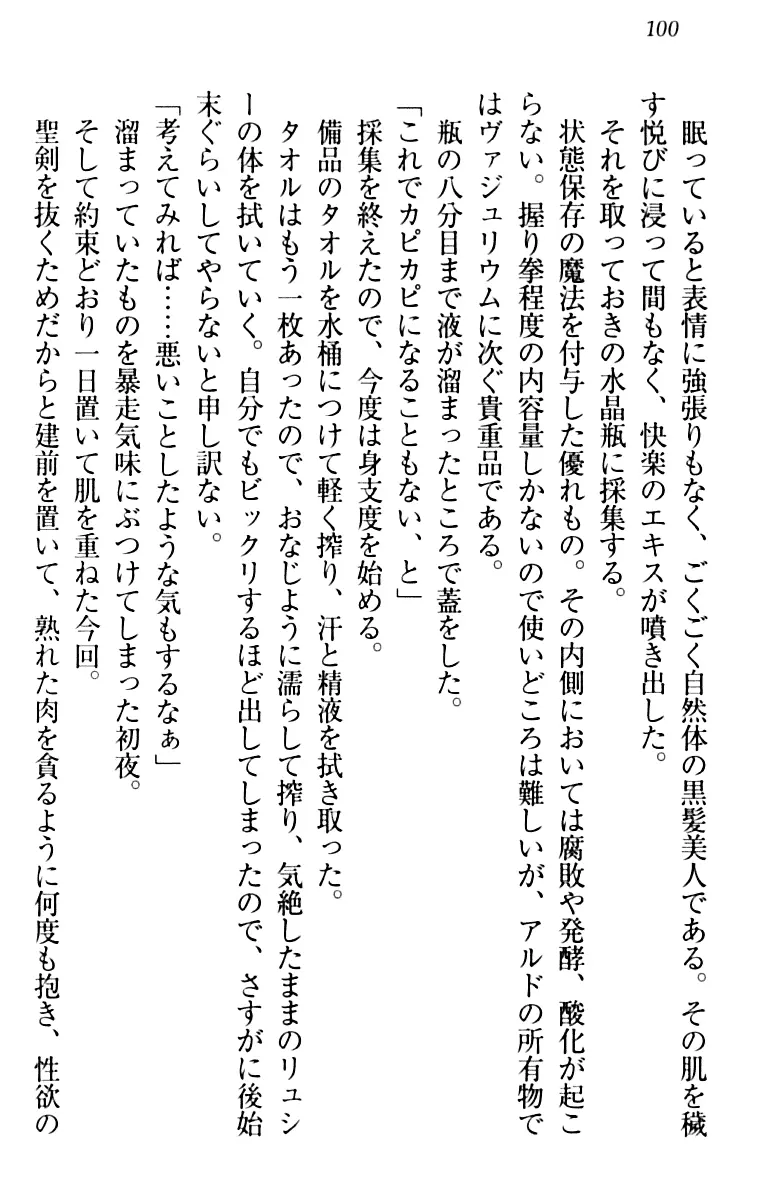 100
眠っていると表情に強張りもなく、ごくごく自然体の黒髪美人である。その肌を穢
す悦びに浸って間もなく、快楽のエキスが噴き出した。
それを取っておきの水晶瓶に採集する。
状態保存の魔法を付与した優れもの。その内側においては腐敗や発酵、酸化が起こ
らない。握り拳程度の内容量しかないので使いどころは難しいが、アルドの所有物で
はヴァジュリウムに次ぐ貴重品である。
瓶の八分目まで液が溜まったところで蓋をした。
「これでカピカピになることもない、と」
採集を終えたので、今度は身支度を始める。
備品のタオルを水桶につけて軽く搾り、汗と精液を拭き取った。
タオルはもう一枚あったので、おなじように濡らして搾り、気絶したままのリュシ
ーの体を拭いていく。自分でもビックリするほど出してしまったので、さすがに後始
末ぐらいしてやらないと申し訳ない。
「考えてみれば……悪いことしたような気もするなぁ」
溜まっていたものを暴走気味にぶつけてしまった初夜。
そして約束どおり一日置いて肌を重ねた今回。
聖剣を抜くためだからと建前を置いて、熟れた肉を貪るように何度も抱き、性欲の